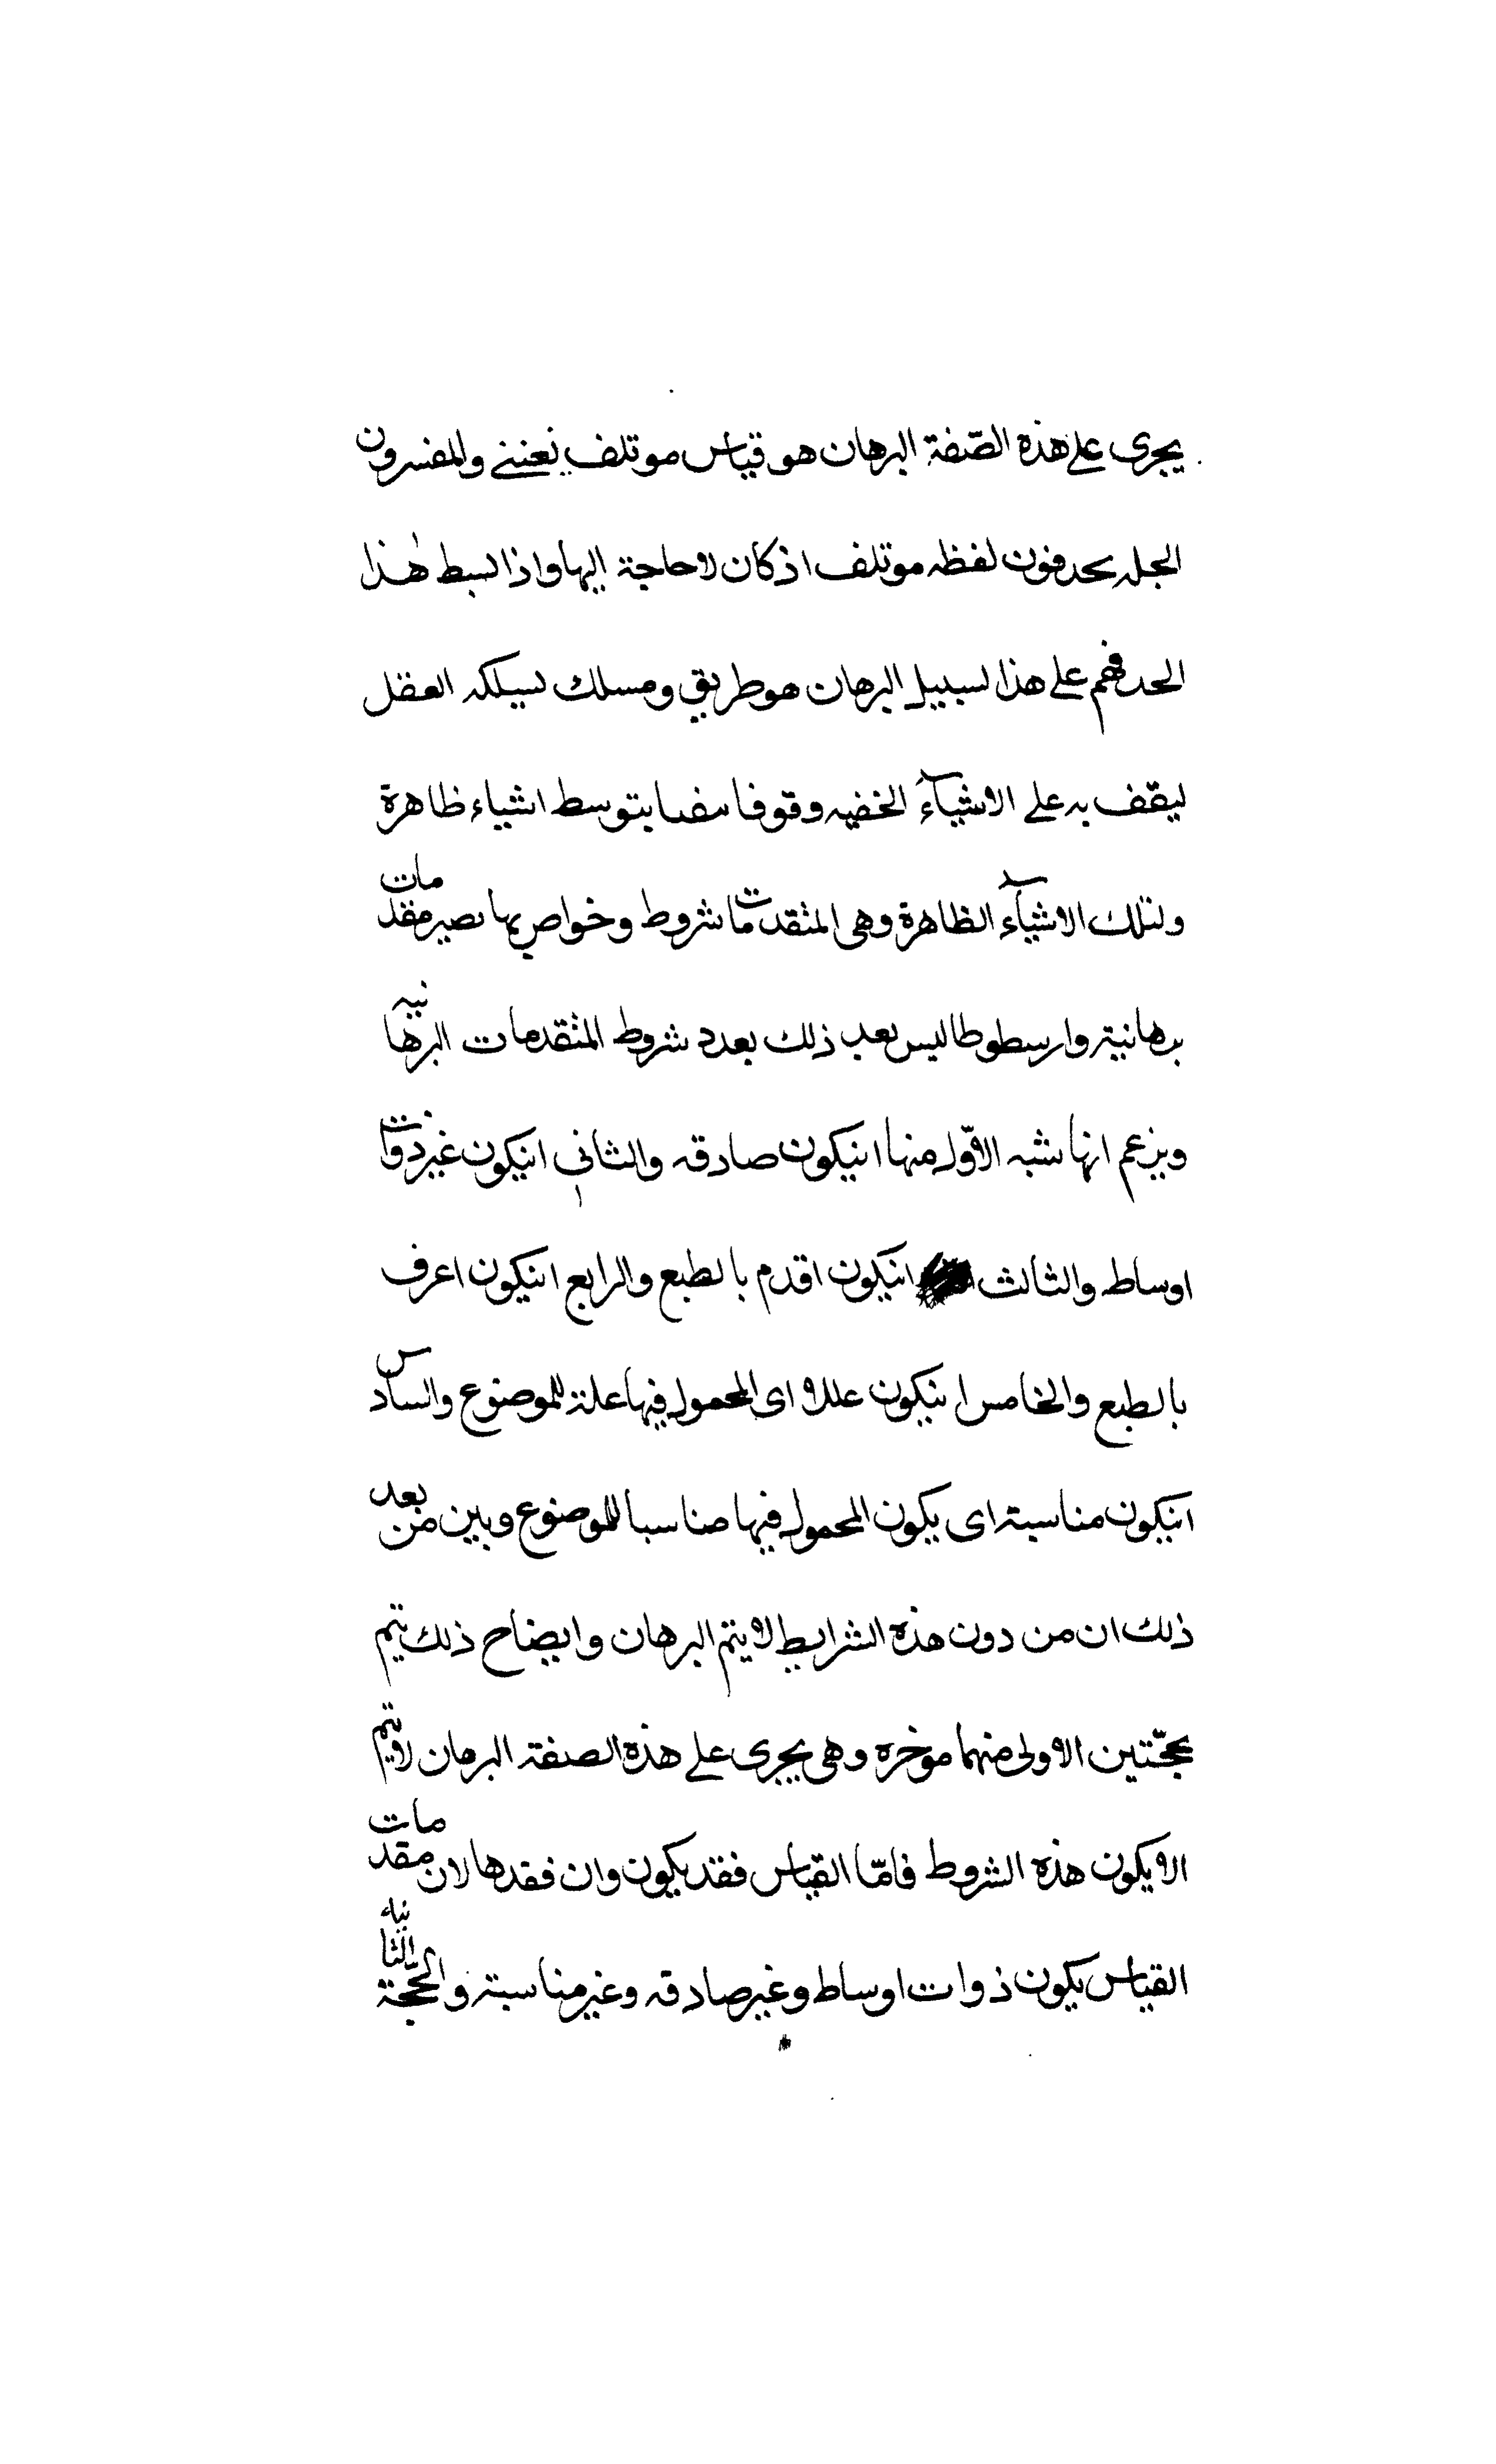 يجرى على هذه الصّفة البرهان هو قياس موتلف يقينى والمفسرون
الجله يحدفون لفظه موتلف اذ كان لا حاجة اليها واذا لبسط هٰذا
الحد فهم على هذا لسبيل البرهان هو طريق ومسلك لسيلكه العقل
ليقف به على الاشيآء الخفيه وقوفا يقينا بتوسط اشياء ظاهرة
ولتلك الاشيآء الظاهرة وهى المتقدمات شروط وخواص بها تصير مقدمات
برهانية وارسطوطاليس بعد ذلك بعدد شروط المتقدمات البرهانيه
ويزعم انها سته الاوّل منها انيكون صادقه والثانى انيكون غير ذوات
اوساط والثالث انيكون اقدم بالطبع والرابع انيكون اعرف
بالطبع والخامس انيكون عللا اى المحمول فيها علة للموضوع والسادس
انيكون مناسبة اى يكون المحمول فيها مناسبا للموضوع وبين من بعد
ذلك ان من دون هذه الشرايط لا يتم البرهان وايضاح ذلك يتم
بحجّتين الاولى منهما موخره وهى يجرى على هذه الصفة البرهان لا يتم
الا يكون هذه الشروط فامّا القياس فقد يكون وان فقدها لان مقدمات
القياس يكون ذوات اوساط وغير صادقه وغير مناسبة والحجّة الثانيه